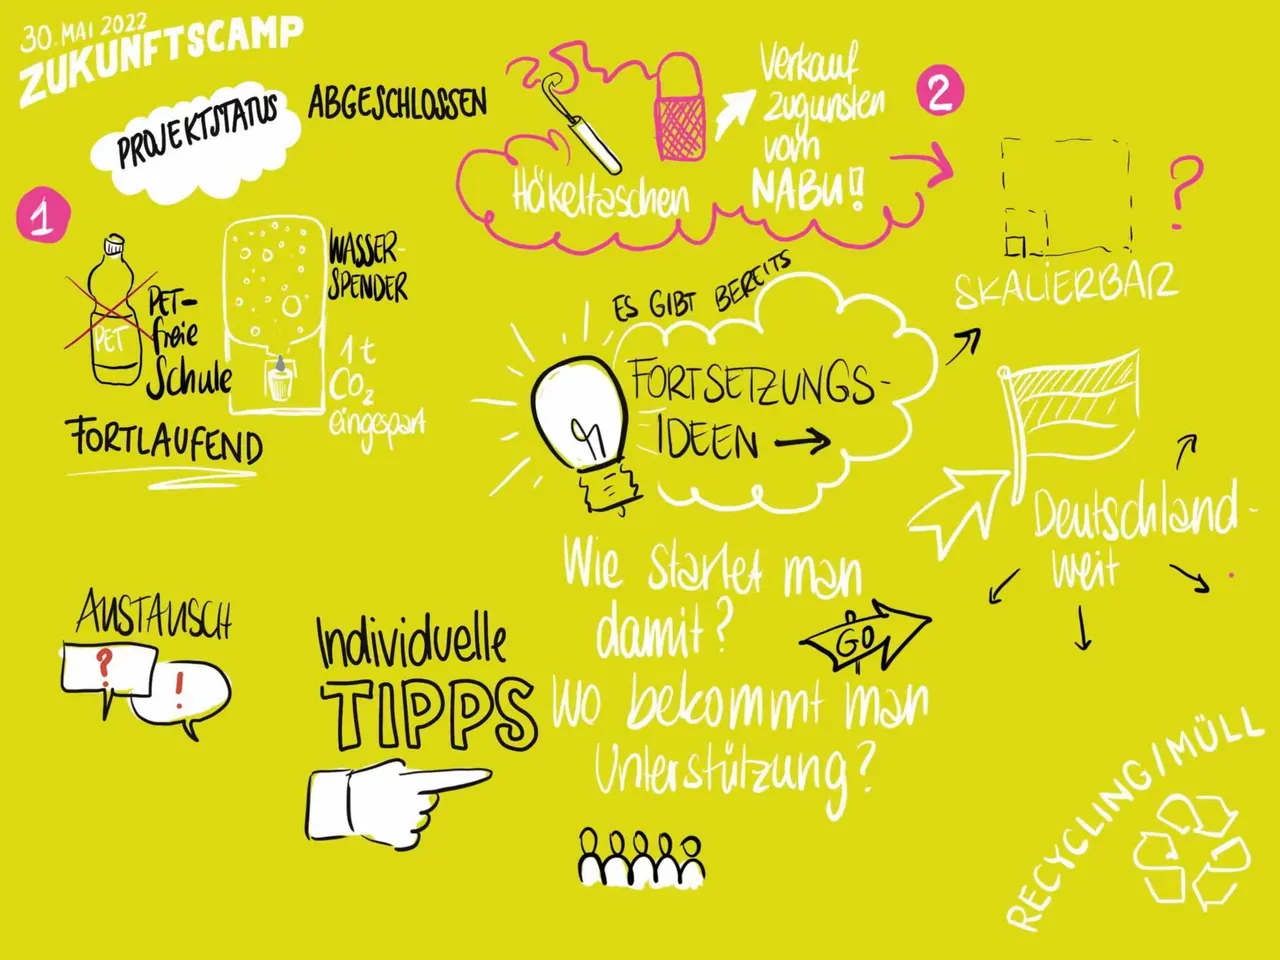 30. MAI 2022
ZUKUNFTSCAMP
PROJEKTSTATUS
ABGESCHLOSSEN
1
PET
PET-
freie
Schule
FORTLAUFEND
WASSER-
SPENDER
1 t
CO₂
eingespart
Häkeltaschen
Verkauf
zugunsten
vom
NABU!
2
?
SKALIERBAR
ES GIBT BEREITS
FORTSETZUNGS-
IDEEN
Deutschland-
weit
AUSTAUSCH
?
!
Individuelle
TIPPS
Wie startet man
damit?
GO
Wo bekommt man
Unterstützung?
RECYCLING/MÜLL